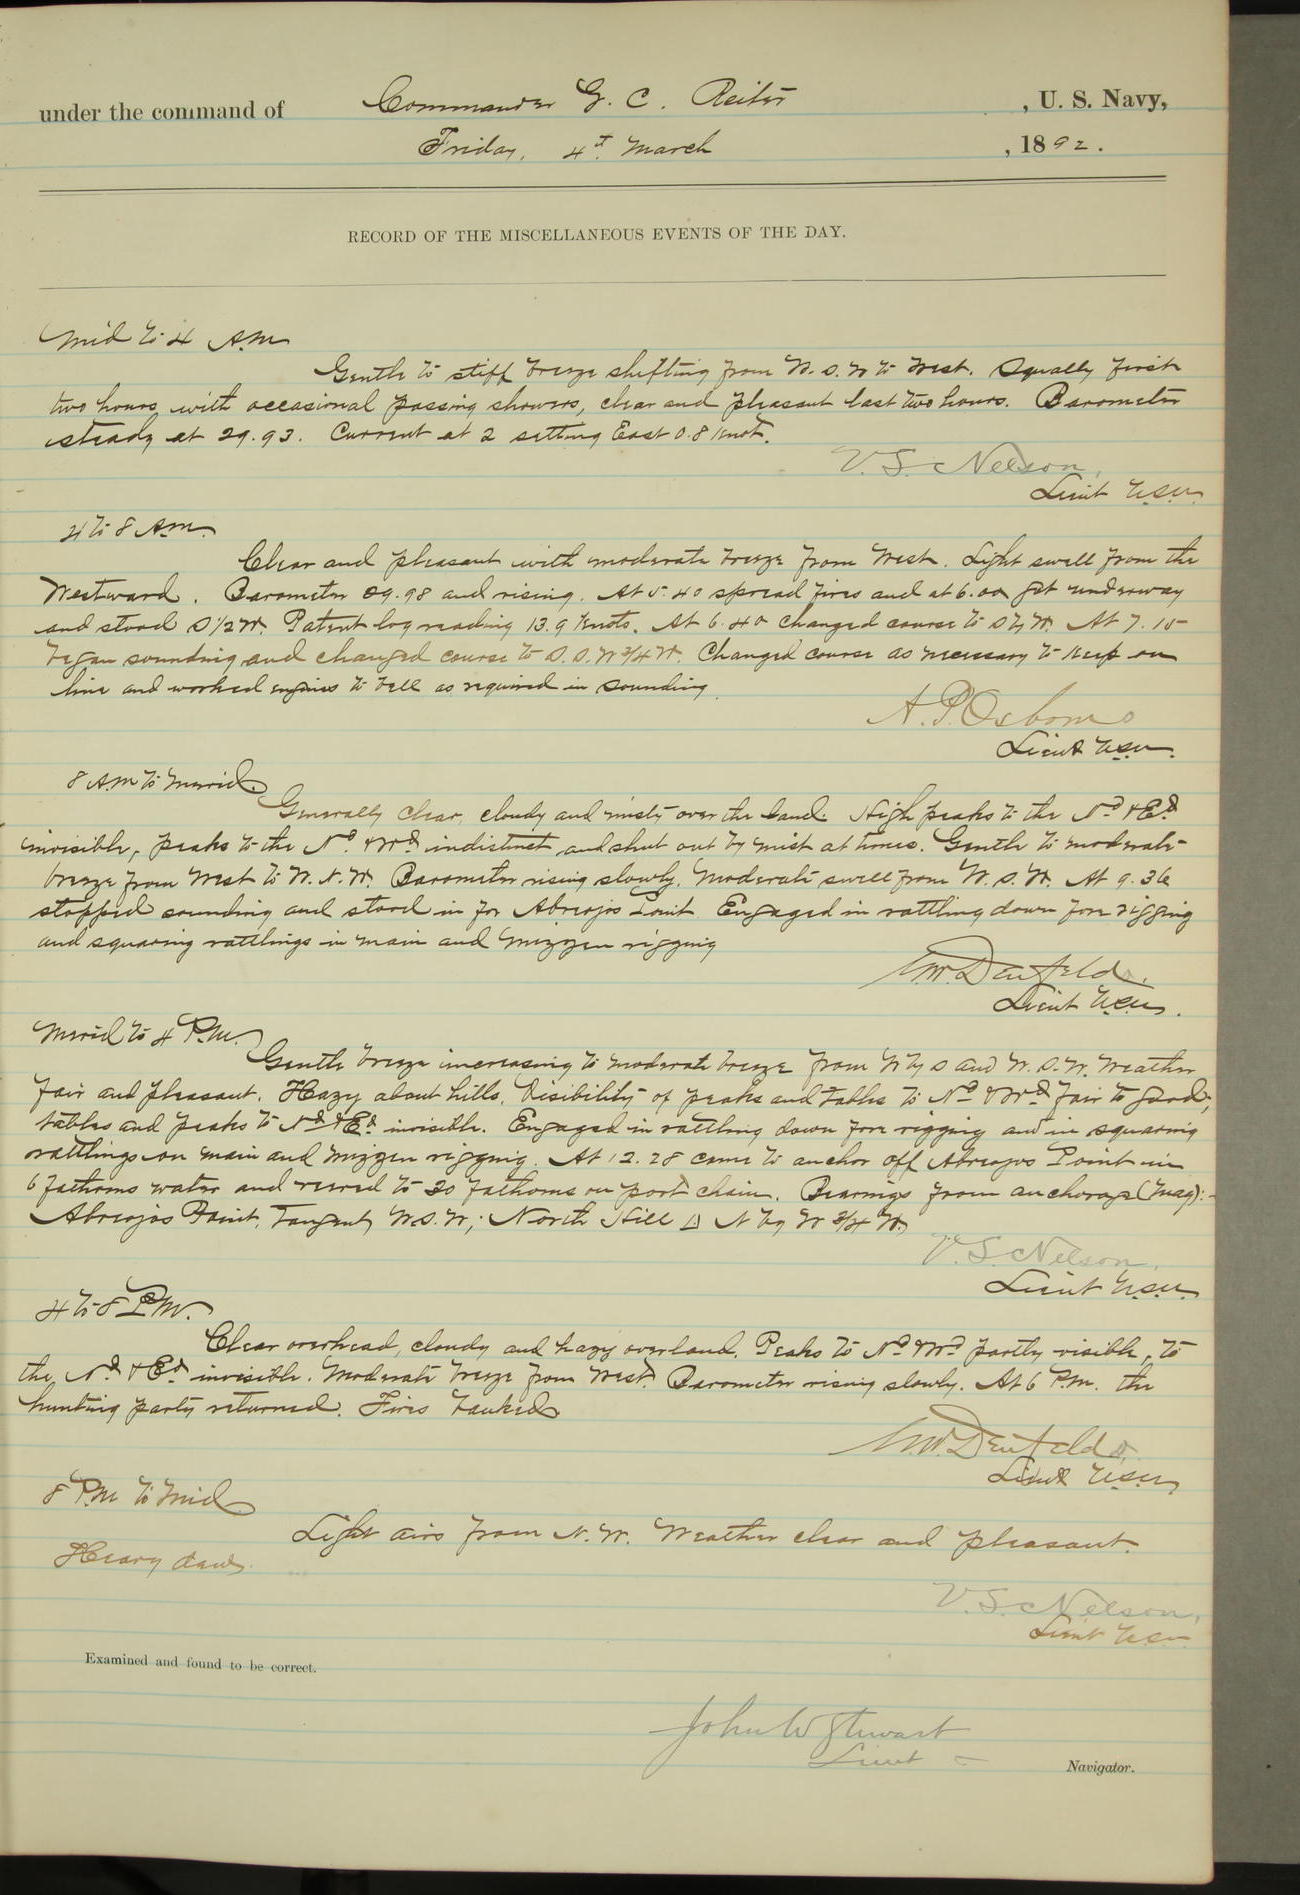 under the command of Commander G. C. Reiter, U. S. Navy,
Friday, 4th March, 1892.
RECORD OF THE MISCELLANEOUS EVENTS OF THE DAY.
Mid to 4 A.M.
Gentle to stiff breeze shifting from W.S.W to West. Squally first
two hours with occasional passing showers, clear and pleasant last two hours. Barometer
steady at 29.93. Current at 2 setting East 0.8 knot.
V. S. Nelson,
Lieut U.S.N.
4 to 8 A.M.
Clear and pleasant with moderate breeze from West. Light swell from the
Westward. Barometer 29.98 and rising. At 5.40 spread fires and at 6.00 got underway
and stood S 1/2 W. Patent log reading 13.9 knots. At 6.40 changed course to S by W. At 7.15
began sounding and changed course to S.S.W 3/4 W. Changed course as necessary to keep on
line and worked engines to bell as required in sounding.
A. P. Osborn
Lieut U.S.N.
8 A.M to Merid.
Generally clear, cloudy and misty over the land. High peaks to the Nd & Ed
invisible, peaks to the Nd & Wd indistinct and shut out by mist at times. Gentle to moderate
breeze from West to W.N.W. Barometer rising slowly. Moderate swell from W.S.W. At 9.36
stopped sounding and stood in for Abreojos Point. Engaged in rattling down fore rigging
and squaring rattlings in main and mizzen rigging
Denfeld.
Lieut U.S.N.
Merid to 4 P.M.
Gentle breeze increasing to moderate breeze from W by S and W.S.W. Weather
fair and pleasant. Hazy about hills. Visibility of peaks and tables to Nd & Wd fair to good;
tables and peaks to Nd & Ed invisible. Engaged in rattling down fore rigging and in squaring
rattlings on main and mizzen rigging. At 12.28 came to anchor off Abreojos Point in
6 fathoms water and veered to 30 fathoms on port chain. Bearings from anchorage (mag):-
Abreojos Point, Tangent, W.S.W; North Hill △ N by W 3/4 W.
V. S. Nelson,
Lieut U.S.N.
4 to 8 P.M.
Clear overhead, cloudy and hazy overland. Peaks to Nd & Wd partly visible, to
the Nd & Ed invisible. Moderate breeze from West. Barometer rising slowly. At 6 P.M. the
hunting party returned. Fires banked
Denfeld,
Lieut U.S.N.
8 P.M to Mid
Light airs from N.W. Weather clear and pleasant.
Heavy dew.
V. S. Nelson,
Lieut U.S.N.
Examined and found to be correct.
John W Stewart
Lieut
Navigator.